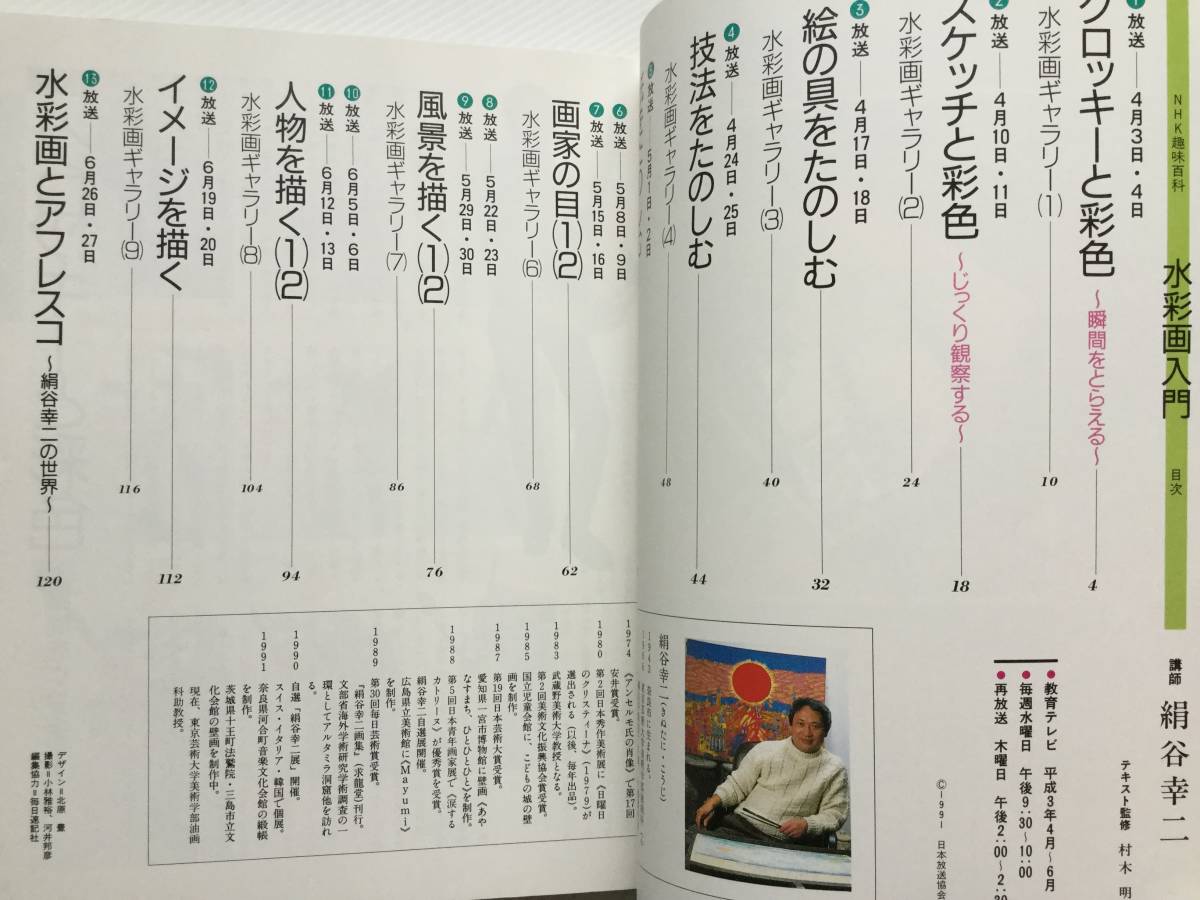 NHK趣味百科
水彩画入門
目次
講師 絹谷幸二
テキスト監修 村木 明
●教育テレビ 平成3年4月〜6月
●毎週水曜日 午後9:30〜10:00
●再放送 木曜日 午後2:00〜2:3
©1991 日本放送協会
1 放送——4月3日・4日
クロッキーと彩色 〜瞬間をとらえる〜——4
水彩画ギャラリー(1)——10
2 放送——4月10日・11日
スケッチと彩色 〜じっくり観察する〜——18
水彩画ギャラリー(2)——24
3 放送——4月17日・18日
絵の具をたのしむ——32
水彩画ギャラリー(3)——40
4 放送——4月24日・25日
技法をたのしむ——44
水彩画ギャラリー(4)——48
5 放送——5月1日・2日
6 放送——5月8日・9日
7 放送——5月15日・16日
画家の目(1)(2)——62
水彩画ギャラリー(6)——68
8 放送——5月22・23日
9 放送——5月29・30日
風景を描く(1)(2)——76
水彩画ギャラリー(7)——86
10 放送——6月5日・6日
11 放送——6月12日・13日
人物を描く(1)(2)——94
水彩画ギャラリー(8)——104
12 放送——6月19日・20日
イメージを描く——112
水彩画ギャラリー(9)——116
13 放送——6月26日・27日
水彩画とアフレスコ 〜絹谷幸二の世界〜——120
絹谷幸二(きぬたに・こうじ)
1943 奈良県に生まれる。
1974 《アンセルモ氏の肖像》で第17回
安井賞受賞。
1980 第2回日本秀作美術展に《日曜日
のクリスティーナ》(1979)が
選出される(以後、毎年出品)。
1983 武蔵野美術大学教授となる。
第2回美術文化振興協会賞受賞。
1985 国立児童会館に、こどもの城の壁
画を制作。
1987 第19回日本芸術大賞受賞。
愛知県一宮市博物館に壁画《あや
なすまち、ひとひとひと》を制作。
1988 第5回日本青年画家展で《涙する
カトリーヌ》が優秀賞を受賞。
絹谷幸二自選展開催。
広島県立美術館に《Mayumi》
を制作。
1989 第30回毎日芸術賞受賞。
『絹谷幸二画集』(求龍堂)刊行。
文部省海外学術研究学術調査の一
環としてアルタミラ洞窟他を訪れ
る。
1990 自選「絹谷幸二展」開催。
スイス・イタリア・韓国で個展。
1991 奈良県河合町音楽文化会館の緞帳
を制作。
茨城県十王町法鷲院・三島市立文
化会館の壁画を制作中。
現在、東京芸術大学美術学部油画
科助教授。
デザイン=北原 豊
撮影=小林雅裕、河井邦彦
編集協力=毎日速記社